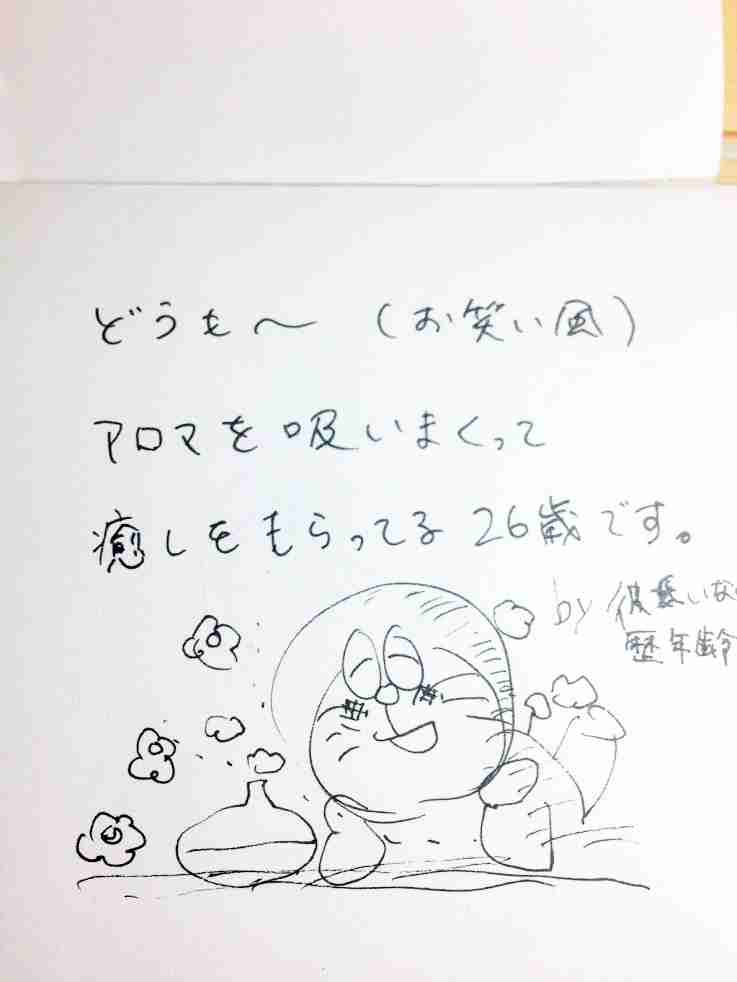 どうも〜 (お笑い風)
アロマを吸いまくって
癒しをもらってる 26歳です。
by 彼
歴年齢